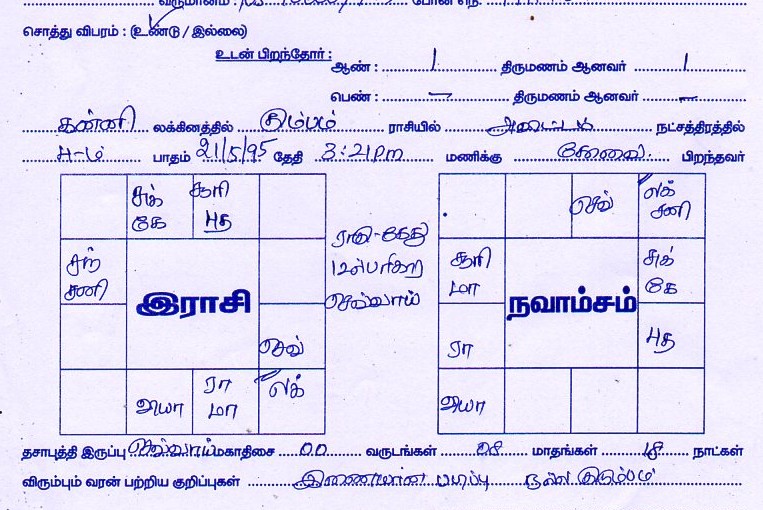 வருமானம் : போன் எண்.
சொத்து விபரம் : (உண்டு / இல்லை)
உடன் பிறந்தோர் :
ஆண் : 1 திருமணம் ஆனவர் 1
பெண் : – திருமணம் ஆனவர் –
கன்னி லக்கினத்தில் கும்பம் ராசியில் நட்சத்திரத்தில்
4-ம் பாதம் 21/5/95 தேதி 3:21 Pm மணிக்கு சேலை பிறந்தவர்
சுக் சூரி செவ் லக்
கே புத சனி
ராகு-கேது
சந் சூரி சுக்
சனி மா கே
செவ்வாய்
இராசி நவாம்சம்
செவ் ரா புத
ரா லக்
வியா மா வியா
தசாபுத்தி இருப்பு செவ்வாய் மகாதிசை 00 வருடங்கள் 08 மாதங்கள் 18 நாட்கள்
விரும்பும் வரன் பற்றிய குறிப்புகள் இணையான படிப்பு நல்ல குடும்பம்